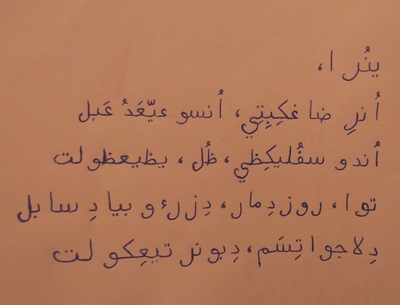 ينُر ا،
أنرِ ضاغكِبِتي، أنسو عيّعَدُ عَبل
أندو سفُليكِظي، ظُل، يظيعظولت
توا، روزدِمار، دِزرء و بيادِ سابل
دِلاجواتِسَم، دِبونر تيعِكولت